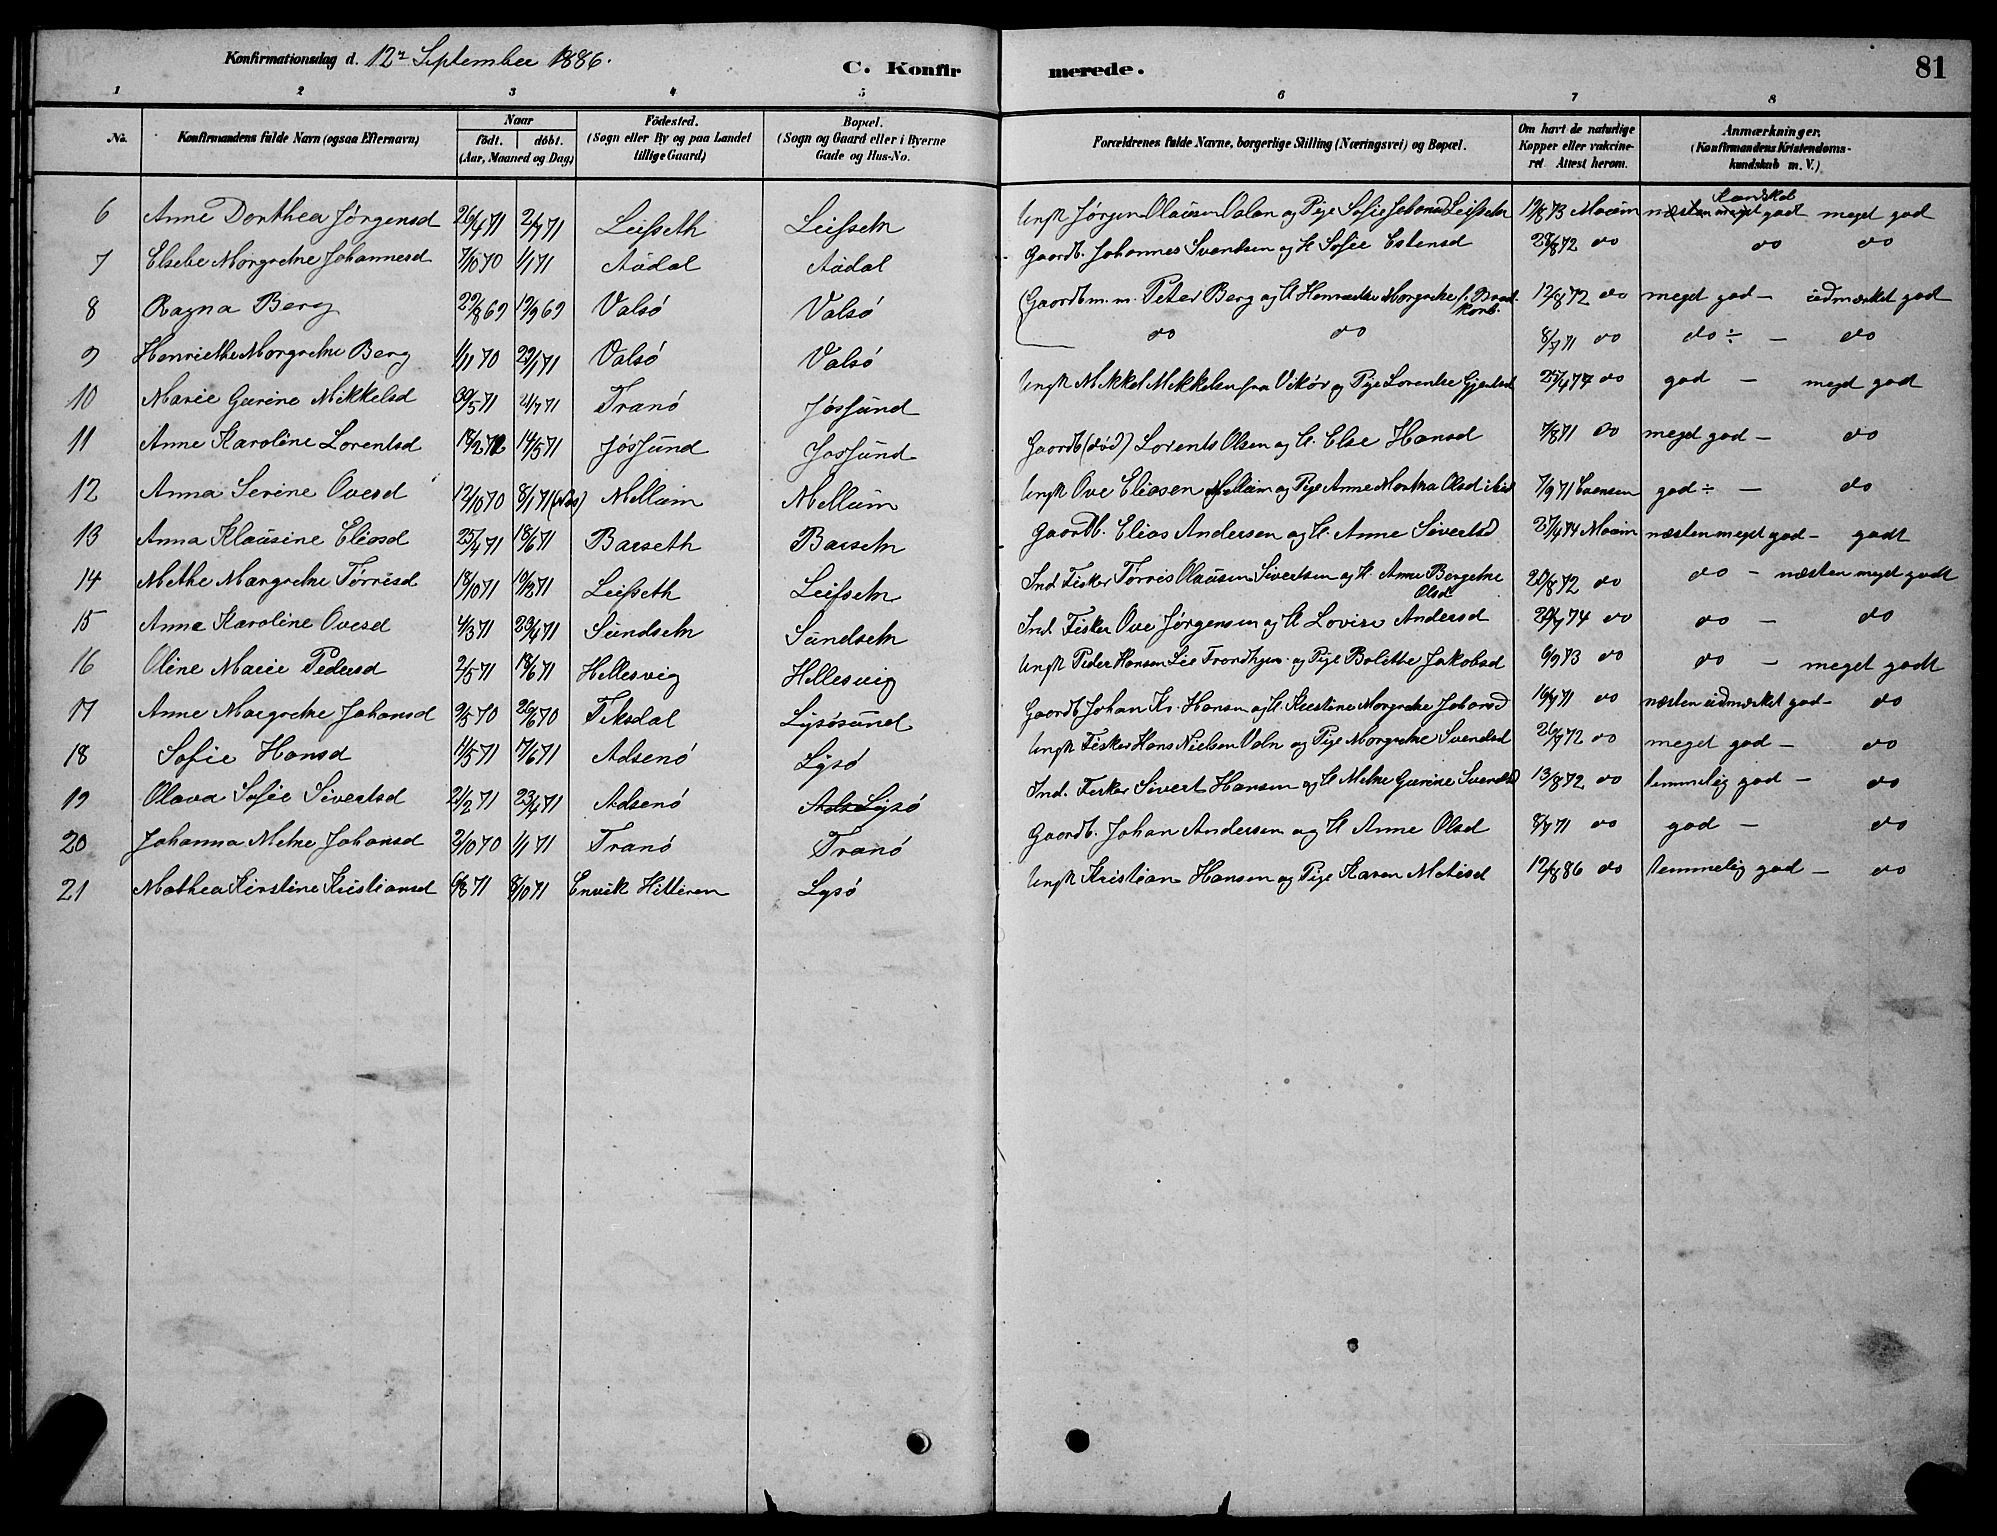 Konfirmationsdag d. 12te September 1886.
C. Konfir
merede.
81
1 2 3 4 5 6 7 8
No. Konfirmandens fulde Navn (ogsaa Efternavn) Naar födt. döbt. (Aar, Maaned og Dag) Födested. (Sogn eller By og paa Landet tillige Gaard) Bopæl. (Sogn og Gaard eller i Byerne Gade og Hus-No. Forældrenes fulde Navne, borgerlige Stilling (Næringsvei) og Bopæl. Om havt de naturlige Kopper eller vakcineret Attest herom. Anmærkninger. (Konfirmandens Kristendomskundskab m. V.)
6 Anne Dorthea Jørgensd 26/4 71 2/7 71 Leifseth Leifseth Ungk Jørgen Olausen Valan og Pige Sofie Johansd Leifseth 12/8 73 Moum Kundskab næsten meget godt meget god
7 Elsebe Margrethe Johannesd 7/10 70 1/1 71 Aüdal Aüdal Gaardb. Johannes Svendsen og H Sofie Estensd 28/8 72 do do do
8 Ragna Berg 22/8 69 12/9 69 Valsö Valsö Gaardbm.m. Peter Berg og H Henriethe Margrethe f. Brodkorb. 12/8 72 do meget god – üdmærket god
9 Henriethe Margrethe Berg 1/11 70 22/1 71 Valsö Valsö do do 8/7 71 do do ÷ – do
10 Marie Gurine Mikkelsd 30/5 71 2/7 71 Tranö Jøssund Ungk Mikkel Mikkelsen fra Vikör og Pige Lorentse Gjertsd 25/4 77 do god – meget god
11 Anne Karoline Lorentsd 18/2 71 14/5 71 Jøssund Jøssund Gaardb (död) Lorents Olsen og H. Else Hansd 7/8 71 do meget god – do
12 Anna Serine Ovesd 12/10 70 8/1 71 Mellüm Mellüm Ungk Ove Eliasen Mellüm og Pige Anne Martha Olsd ibid 7/9 71 Evensen god ÷ – do
13 Anna Klausine Eliasd 25/4 71 18/6 71 Barseth Barseth Gaardb. Elias Andersen og H. Anne Sivertsd 27/4 74 Moum næsten meget god – godt
14 Methe Margrethe Törrisd 18/10 71 10/12 71 Leifseth Leifseth Ind. Fisker Törris Olausen Sivertsen og H. Anne Bergethe Olsd 20/8 72 do do – næsten meget godt
15 Anna Karoline Ovesd 4/3 71 23/4 71 Sündseth Sündseth Ind. Fisker Ove Jørgensen og H Lovise Andersd 24/7 74 do do – do
16 Oline Marie Pedersd 2/5 71 18/6 71 Hellesvig Hellesvig Ungk Peder Hansen Lie Trondhjem og Pige Bolethe Jakobsd 6/9 73 do do – meget godt
17 Anne Margrethe Johansd 2/5 70 26/6 70 Tiksdal Lysösünd Gaardb Johan Kr. Hansen og H Kirstine Margrethe Johansd 16/7 71 do næsten üdmærket god – do
18 Sofie Hansd 1/5 71 7/6 71 Adsenö Lysö Ungk Fisker Hans Nielsen Valn og Pige Margrethe Svendsd 26/7 72 do meget god – do
19 Olava Sofie Sivertsd 21/2 71 23/4 71 Adsenö Lysö Ind. Fisker Sivert Hansen og H Methe Gurine Svendsd 13/8 72 do temmelig god – do
20 Johanna Methe Johansd 3/10 70 1/1 71 Tranö Tranö Gaardb. Johan Andersen og H Anne Olsd 8/7 71 do god – do
21 Mathea Kirstine Kristiansd 6/8 71 8/10 71 Envik Hitteren Lysö Ungk Kristian Hansen og Pige Karen Matisd 12/8 86 do temmelig god – do